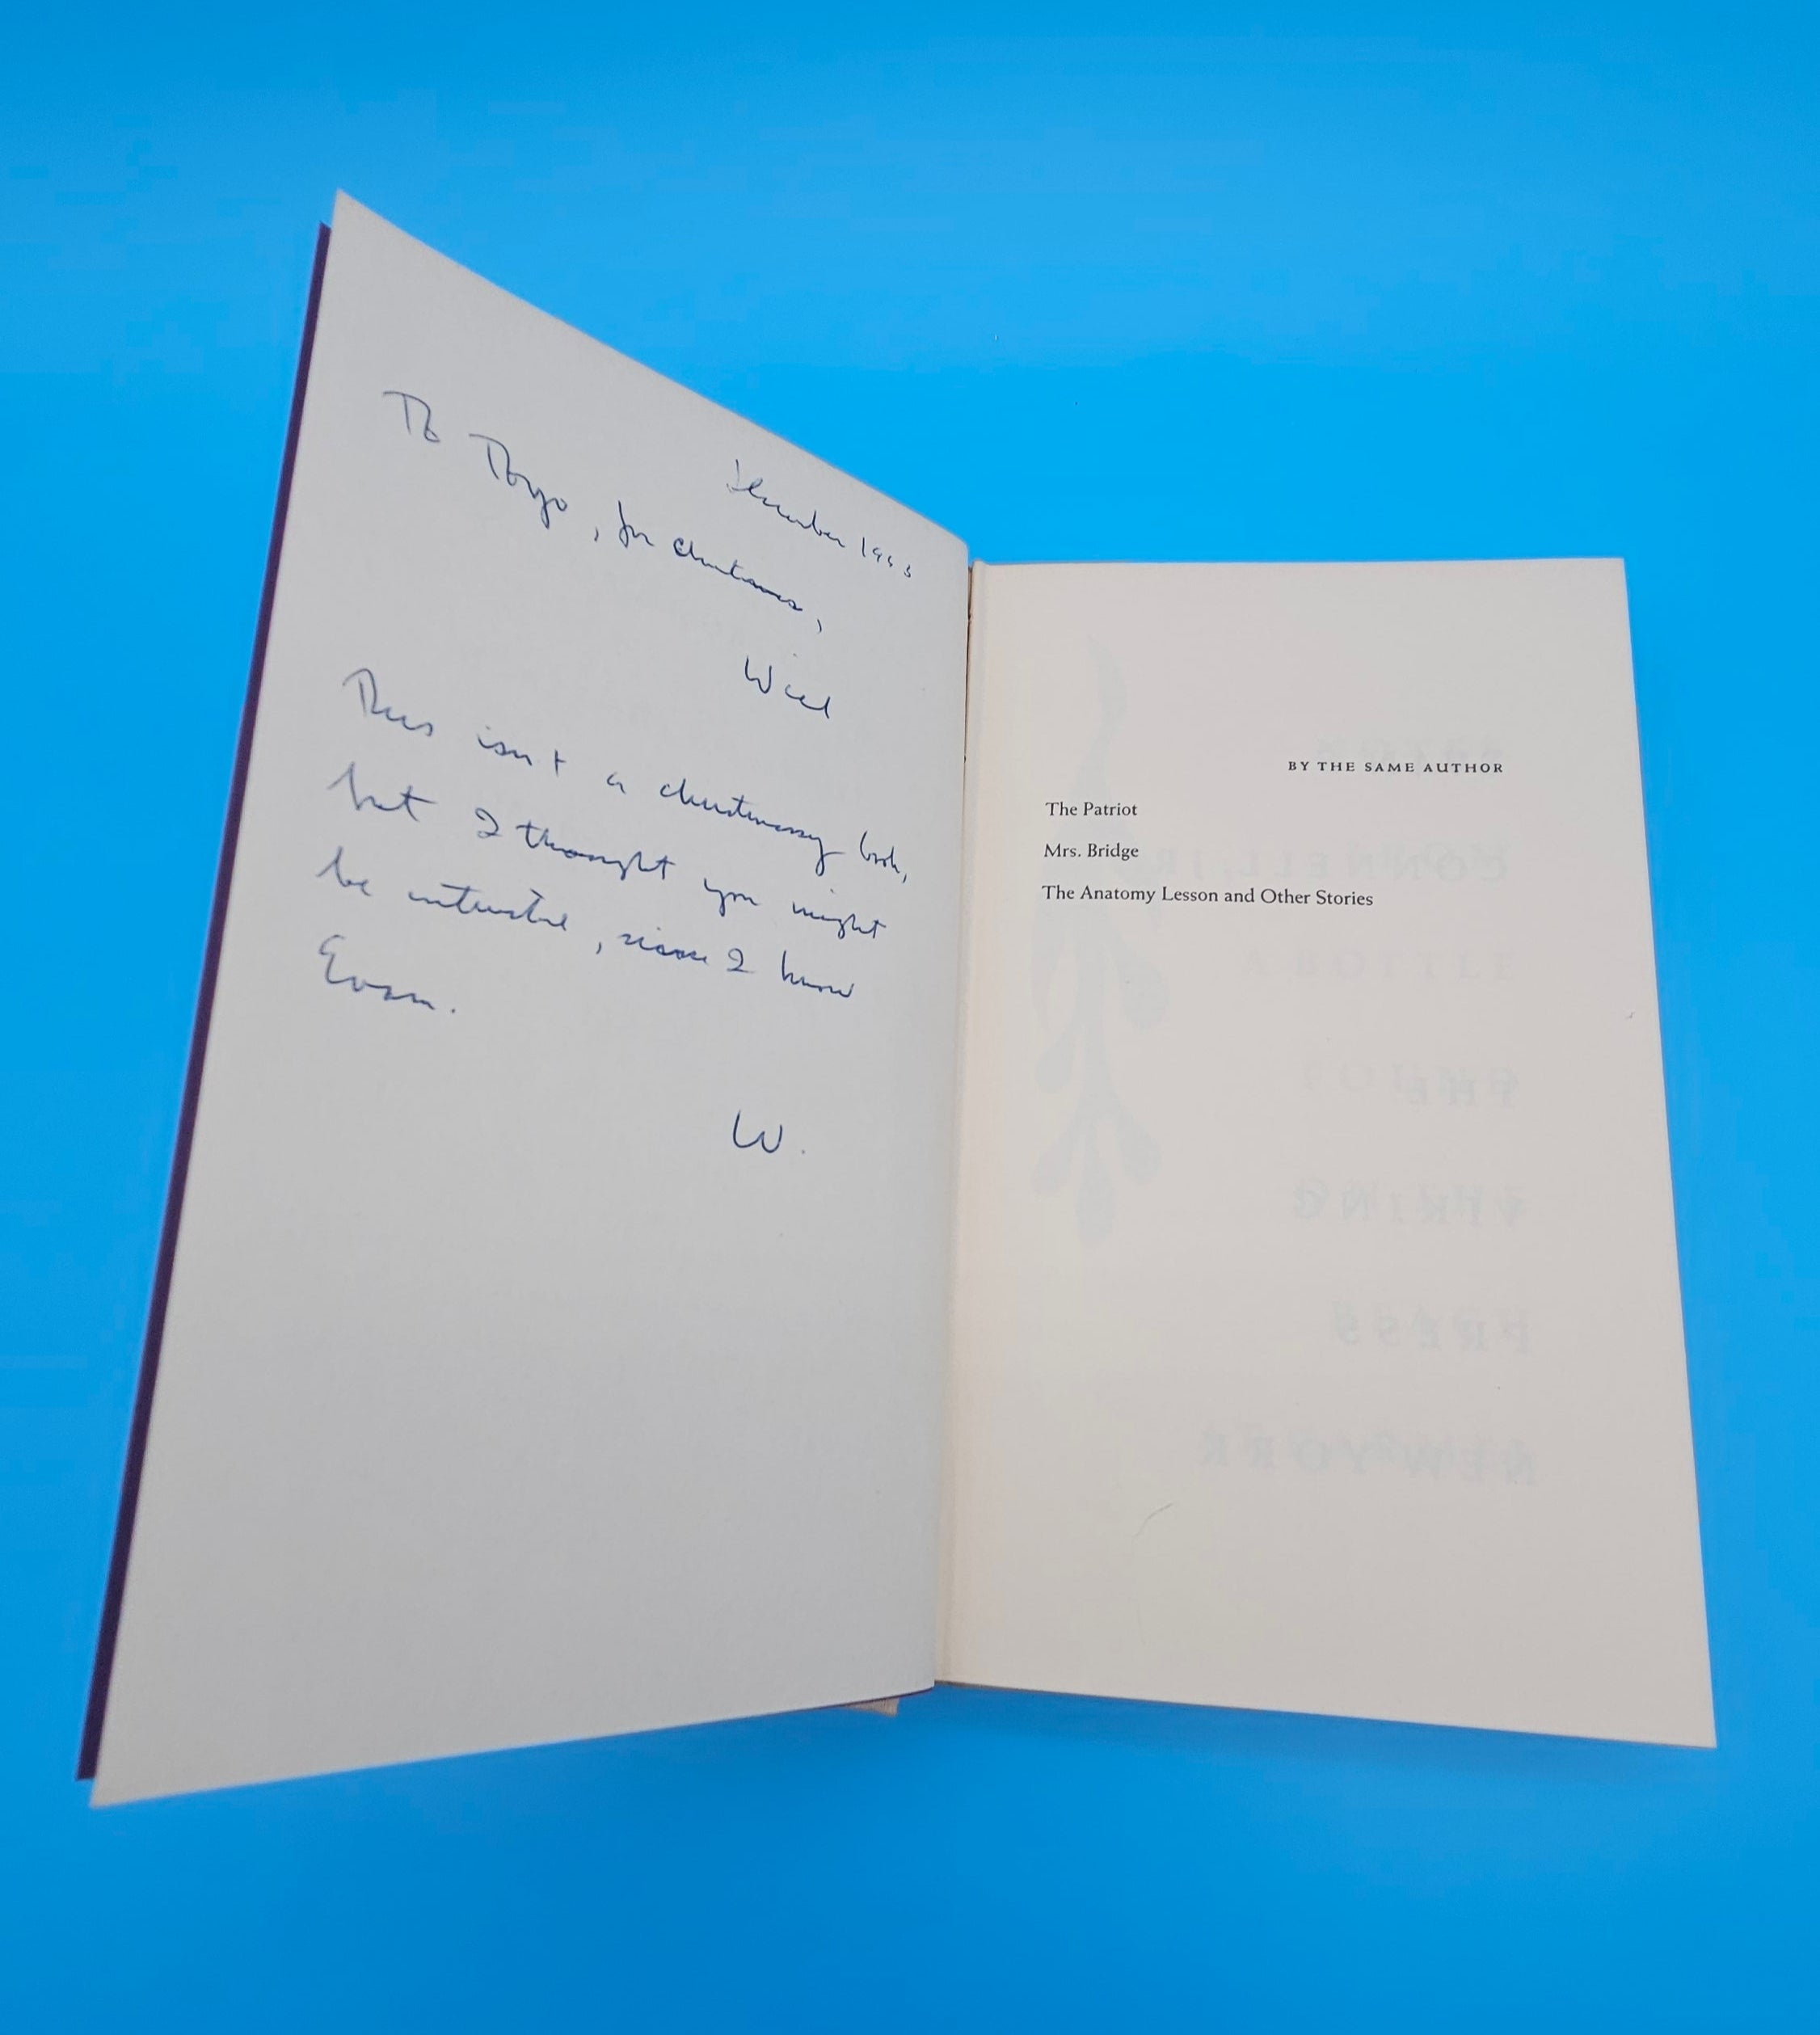 December 1963
To , for christmas,
Will
This isn't a christmassy book,
but I thought you might
be interested, since I know
Evan.
W.
BY THE SAME AUTHOR
The Patriot
Mrs. Bridge
The Anatomy Lesson and Other Stories